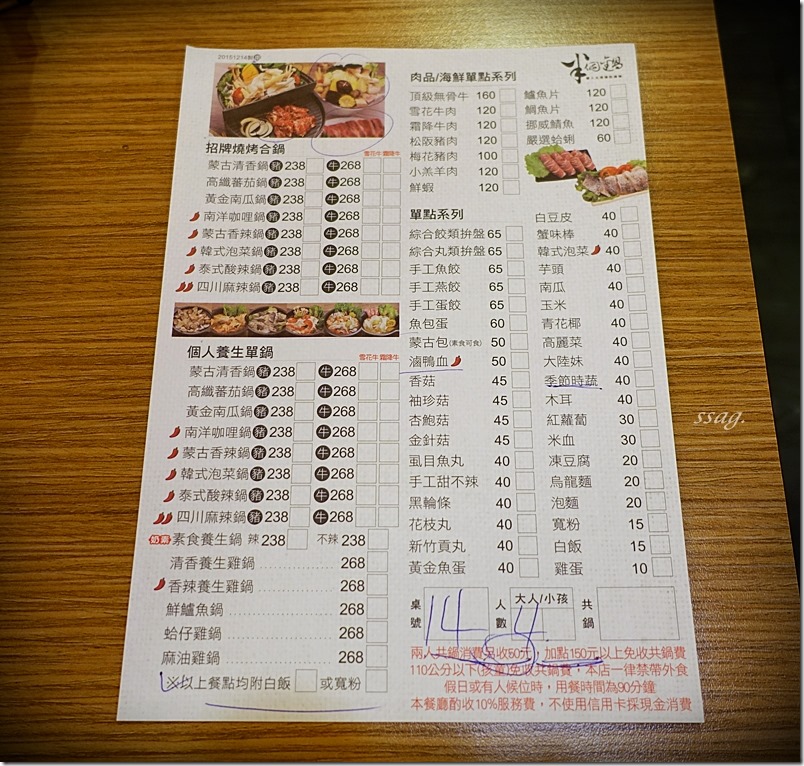 20151214新
半個鍋
招牌燒烤合鍋
雪花牛 霜降牛
蒙古清香鍋 豬 238 牛 268
高纖蕃茄鍋 豬 238 牛 268
黃金南瓜鍋 豬 238 牛 268
南洋咖哩鍋 豬 238 牛 268
蒙古香辣鍋 豬 238 牛 268
韓式泡菜鍋 豬 238 牛 268
泰式酸辣鍋 豬 238 牛 268
四川麻辣鍋 豬 238 牛 268
個人養生單鍋
雪花牛 霜降牛
蒙古清香鍋 豬 238 牛 268
高纖蕃茄鍋 豬 238 牛 268
黃金南瓜鍋 豬 238 牛 268
南洋咖哩鍋 豬 238 牛 268
蒙古香辣鍋 豬 238 牛 268
韓式泡菜鍋 豬 238 牛 268
泰式酸辣鍋 豬 238 牛 268
四川麻辣鍋 豬 238 牛 268
奶素 素食養生鍋 辣 238 不辣 238
清香養生雞鍋 268
香辣養生雞鍋 268
鮮鱸魚鍋 268
蛤仔雞鍋 268
麻油雞鍋 268
※以上餐點均附白飯 或寬粉
肉品/海鮮單點系列
頂級無骨牛 160
雪花牛肉 120
霜降牛肉 120
松阪豬肉 120
梅花豬肉 100
小羔羊肉 120
鮮蝦 120
鱸魚片 120
鯛魚片 120
挪威鯖魚 120
嚴選蛤蜊 60
單點系列
綜合餃類拚盤 65
綜合丸類拚盤 65
手工魚餃 65
手工燕餃 65
手工蛋餃 65
魚包蛋 60
蒙古包(素食可食) 50
滷鴨血 50
香菇 45
袖珍菇 45
杏鮑菇 45
金針菇 45
虱目魚丸 40
手工甜不辣 40
黑輪條 40
花枝丸 40
新竹貢丸 40
黃金魚蛋 40
白豆皮 40
蟹味棒 40
韓式泡菜 40
芋頭 40
南瓜 40
玉米 40
青花椰 40
高麗菜 40
大陸妹 40
季節時蔬 40
木耳 40
紅蘿蔔 30
米血 30
凍豆腐 20
烏龍麵 20
泡麵 20
寬粉 15
白飯 15
雞蛋 10
桌號 14 人數 大人/小孩 4 共鍋
兩人共鍋消費另收50元，加點150元以上免收共鍋費
110公分以下(孩童)免收共鍋費，本店一律禁帶外食
假日或有人候位時，用餐時間為90分鐘
本餐廳酌收10%服務費，不使用信用卡採現金消費
ssag.